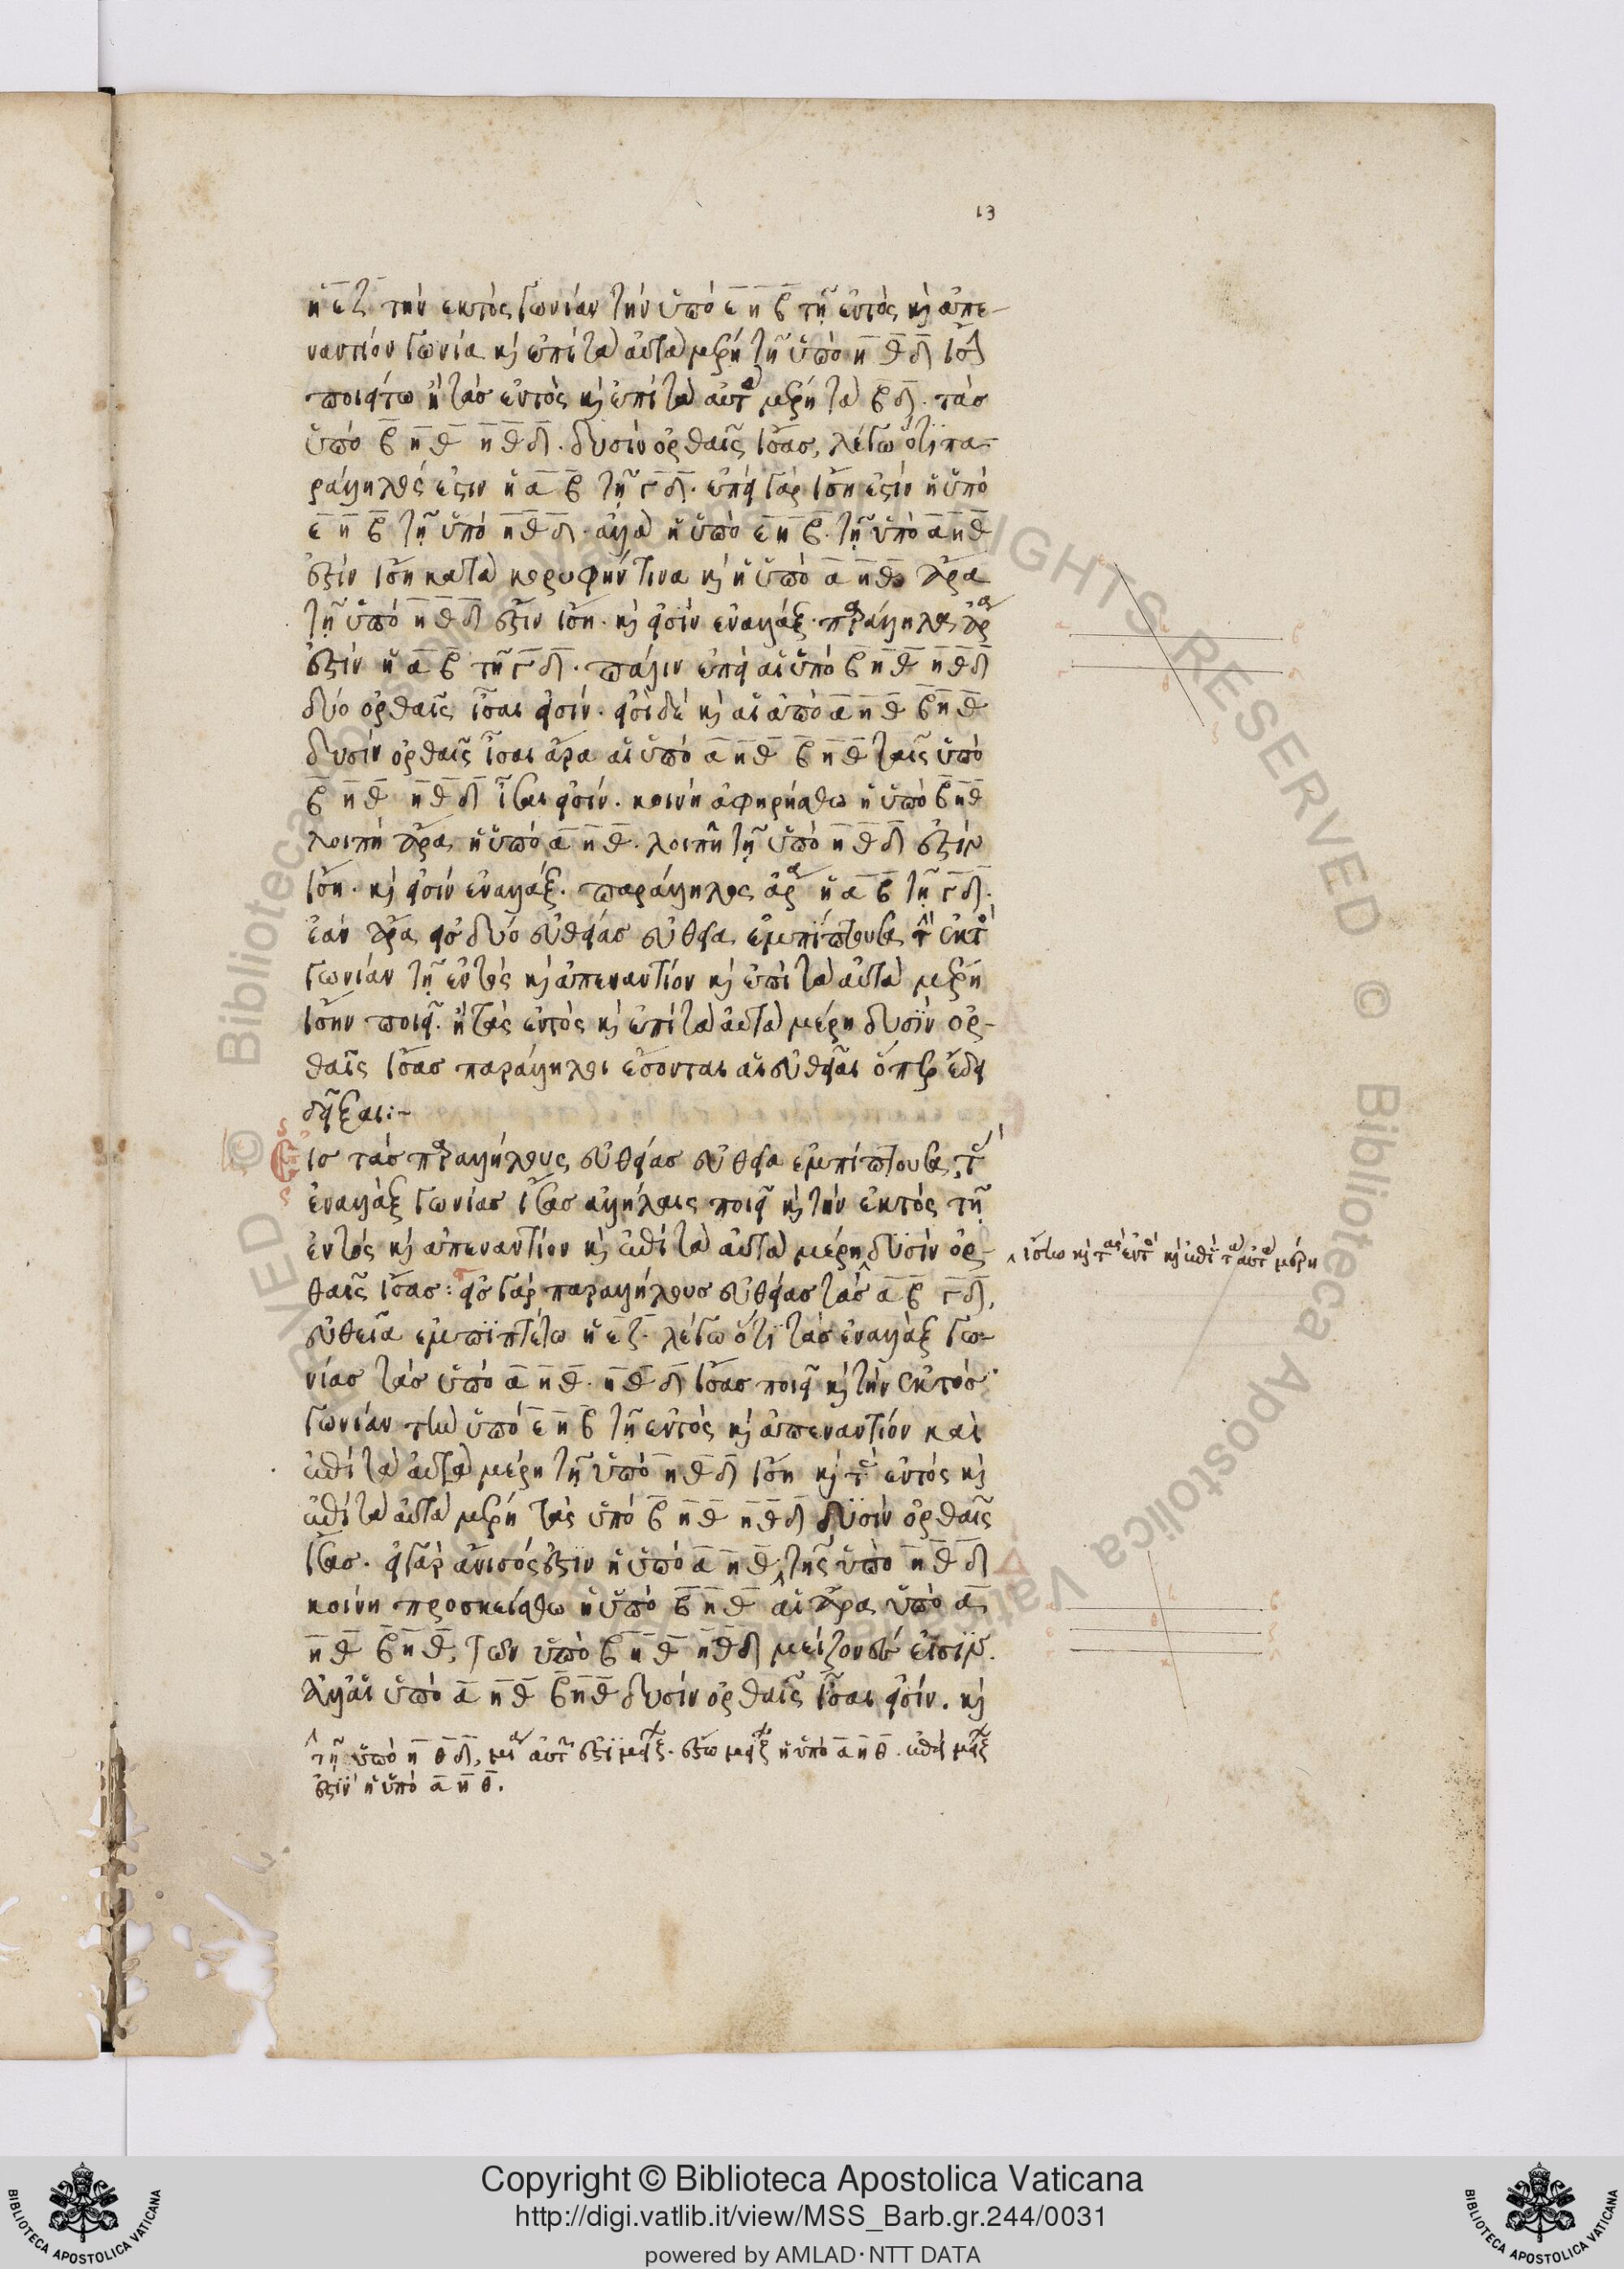 13
ἡ εζ τὴν ἐκτὸς γωνίαν τὴν ὑπὸ ε η β τῇ ἐντὸς κὶ ἀπε-
ναντίον γωνία κὶ ἐπὶ τὰ αὐτὰ μέρη τῇ ὑπὸ η θ δ
ποιείτω ἢ τὰσ ἐντὸς κὶ ἐπὶ τὰ αὐτὰ μέρη τὰ β δ. τὰσ
ὑπὸ β η θ η θ δ. δυσὶν ὀρθαῖς ἴσασ, λέγω ὅτι πα-
ράλληλός ἐστιν ἡ α β τῇ γ δ. ἐπεὶ γὰρ ἴση ἐστὶν ἡ ὑπὸ
ε η β τῇ ὑπὸ η θ δ. ἀλλὰ ἡ ὑπὸ ε η β. τῇ ὑπὸ α η θ
ἐστὶν ἴση κατὰ κορυφήν τινα κὶ ἡ ὑπὸ α η θ ἄρα
τῇ ὑπὸ η θ δ ἐστιν ἴση. κὶ εἰσὶν ἐναλλάξ. παράλληλος ἄρα
ἐστὶν ἡ α β τῇ γ δ. πάλιν ἐπεὶ αἱ ὑπὸ β η θ η θ δ
δύο ὀρθαῖς ἴσαι εἰσίν. εἰσὶ δὲ κὶ αἱ ἀπὸ α η θ β η θ
δυσὶν ὀρθαῖς ἴσαι ἄρα αἱ ὑπὸ α η θ β η θ ταῖς ὑπὸ
β η θ η θ δ ἴσαι εἰσίν. κοινὴ ἀφηρήσθω ἡ ὑπὸ β η θ
λοιπὴ ἄρα ἡ ὑπὸ α η θ. λοιπῇ τῇ ὑπὸ η θ δ ἐστὶν
ἴση. κὶ εἰσὶν ἐναλλάξ. παράλληλος ἄρα ἡ α β τῇ γ δ.
ἐὰν ἄρα εἰσ δύο εὐθείασ εὐθεῖα ἐμπίπτουσα τὴν ἐκτὸς
γωνίαν τῇ ἐντὸς κὶ ἀπεναντίον κὶ ἐπὶ τὰ αὐτὰ μέρη
ἴσην ποιεῖ. ἢ τὰς ἐντὸς κὶ ἐπὶ τὰ αὐτὰ μέρη δυσὶν ὀρ-
θαῖς ἴσασ παράλληλοι ἔσονται αἱ εὐθεῖαι ὅπερ ἔδει
δεῖξαι:-
Εισ τὰσ παραλλήλους εὐθείασ εὐθεῖα ἐμπίπτουσα, τὰς
ἐναλλὰξ γωνίασ ἴσασ ἀλλήλαις ποιεῖ κὶ τὴν ἐκτὸς τῇ
ἐντὸς κὶ ἀπεναντίον κὶ ἐπὶ τὰ αὐτὰ μέρη δυσὶν ὀρ-
θαῖς ἴσασ: εἰσ γὰρ παραλλήλουσ εὐθείασ τὰσ α β γ δ,
εὐθεῖα ἐμπιπτέτω ἡ ε ζ λέγω ὅτι τὰσ ἐναλλὰξ γω-
νίασ τὰσ ὑπὸ α η θ. η θ δ ἴσασ ποιεῖ κὶ τὴν ἐκτὸσ
γωνίαν τὴν ὑπὸ ε η β τῇ ἐντὸς κὶ ἀπεναντίον καὶ
ἐπὶ τὰ αὐτὰ μέρη τῇ ὑπὸ η θ δ ἴση κὶ τὰς ἐντὸς κὶ
ἐπὶ τὰ αὐτὰ μέρη τὰς ὑπὸ β η θ η θ δ δυσὶν ὀρθαῖς
ἴσασ. εἰ γὰρ ἄνισός ἐστιν ἡ ὑπὸ α η θ, τῆς ὑπὸ η θ δ
κοινὴ προσκείσθω ἡ ὑπὸ β η θ αἱ ἄρα ὑπὸ α
η θ β η θ, τῶν ὑπὸ β η θ η θ δ μείζονές εἰσιν.
ἀλλ' αἱ ὑπὸ α η θ β η θ δυσὶν ὀρθαῖς ἴσαι εἰσίν. κὶ
τῇ ὑπὸ η θ δ, μία αὐτῶν ἐστὶ μείζ. ἔστω μείζ ἡ ὑπὸ α η θ. ἐπεὶ μείζ
ἐστὶν ἡ ὑπὸ α η θ.
ἴστω κὶ τὰς ἐντὸς κὶ ἐπὶ τὰ αὐτὰ μέρη
Copyright © Biblioteca Apostolica Vaticana
http://digi.vatlib.it/view/MSS_Barb.gr.244/0031
powered by AMLAD·NTT DATA
BIBLIOTECA APOSTOLICA VATICANA
BIBLIOTECA APOSTOLICA VATICANA